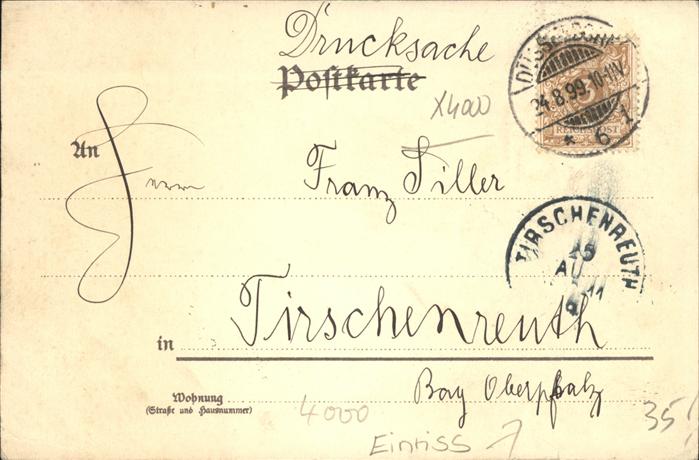 Drucksache
Postkarte
DÜSSELDORF
24.8.99.10-11V.
* 6 1
3
REICHSPOST
X4000
An
Herrn
Franz Siller
TIRSCHENREUTH
25
AU
11
in Tirschenreuth
Wohnung
(Straße und Hausnummer)
Bay Oberpfalz
4000
Einriss
35